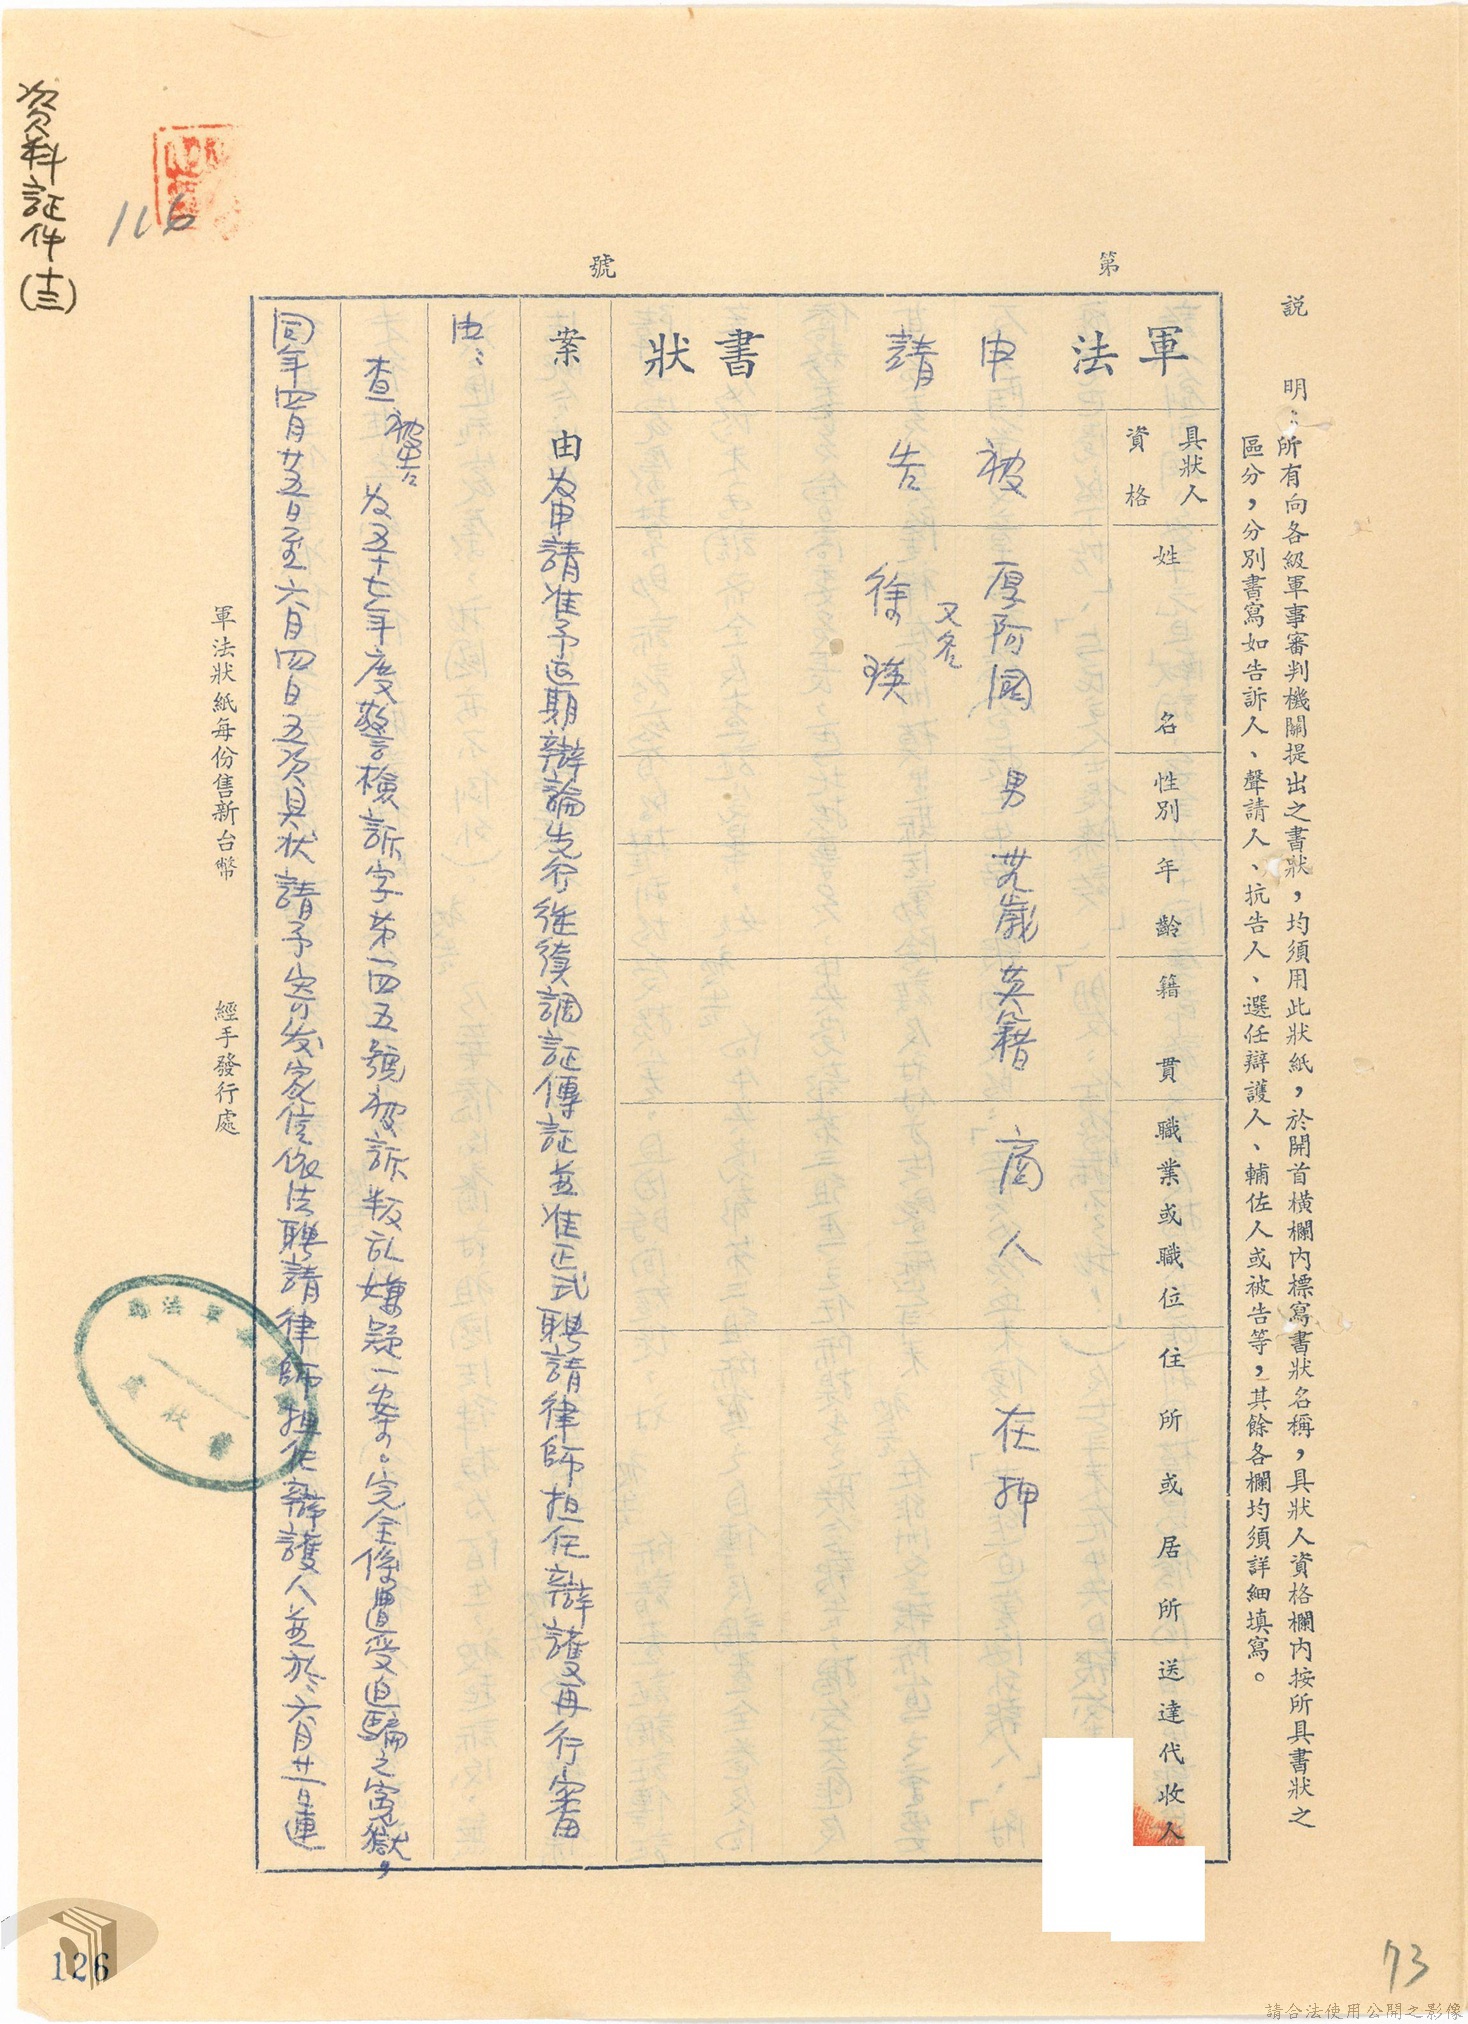 說　明：所有向各級軍事審判機關提出之書狀，均須用此狀紙，於開首橫欄內標寫書狀名稱，具狀人資格欄內按所具書狀之
區分，分別書寫如告訴人、聲請人、抗告人、選任辯護人、輔佐人或被告等，其餘各欄均須詳細填寫。
第　號
軍法申請書狀
具狀人資格
姓名
性別
年齡
籍貫
職業或職位
住所或居所
送達代收人
被告
厚阿國
又名
徐瑛
男
歲
英籍
商人
在押
案由
為申請准予延期辯論先行繼續調証傳証並准正式聘請律師担任辯護再行審
由：
查被告為五十七年度警檢訴字第一四五號被訴叛乱嫌疑一案。完全係遭受迫騙之寃獄，
同年四月廿五日至六月四日五次具狀請予寄发家信依法聘請律師担任辯護人並於六月廿一日連
軍法狀紙每份售新台幣　經手發行處
資料証件(十三)
116
126
73
請合法使用公開之影像